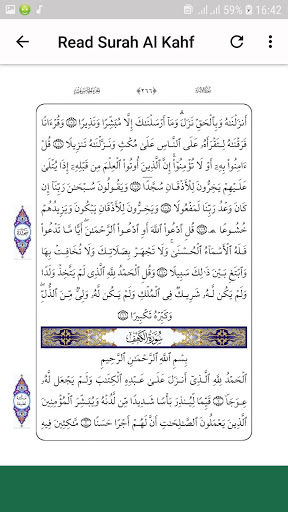 16:42 59%
Read Surah Al Kahf
﴿٢٦٦﴾
أَنزَلْنَٰهُ وَبِٱلْحَقِّ نَزَلَ ۗ وَمَآ أَرْسَلْنَٰكَ إِلَّا مُبَشِّرًا وَنَذِيرًا ﴿١٠٥﴾ وَقُرْءَانًا
فَرَقْنَٰهُ لِتَقْرَأَهُۥ عَلَى ٱلنَّاسِ عَلَىٰ مُكْثٍ وَنَزَّلْنَٰهُ تَنزِيلًا ﴿١٠٦﴾ قُلْ
ءَامِنُوا۟ بِهِۦٓ أَوْ لَا تُؤْمِنُوٓا۟ ۚ إِنَّ ٱلَّذِينَ أُوتُوا۟ ٱلْعِلْمَ مِن قَبْلِهِۦٓ إِذَا يُتْلَىٰ
عَلَيْهِمْ يَخِرُّونَ لِلْأَذْقَانِ سُجَّدًا ﴿١٠٧﴾ وَيَقُولُونَ سُبْحَٰنَ رَبِّنَآ إِن
كَانَ وَعْدُ رَبِّنَا لَمَفْعُولًا ﴿١٠٨﴾ وَيَخِرُّونَ لِلْأَذْقَانِ يَبْكُونَ وَيَزِيدُهُمْ
خُشُوعًا ۩ ﴿١٠٩﴾ قُلِ ٱدْعُوا۟ ٱللَّهَ أَوِ ٱدْعُوا۟ ٱلرَّحْمَٰنَ ۖ أَيًّا مَّا تَدْعُوا۟
فَلَهُ ٱلْأَسْمَآءُ ٱلْحُسْنَىٰ ۚ وَلَا تَجْهَرْ بِصَلَاتِكَ وَلَا تُخَافِتْ بِهَا
وَٱبْتَغِ بَيْنَ ذَٰلِكَ سَبِيلًا ﴿١١٠﴾ وَقُلِ ٱلْحَمْدُ لِلَّهِ ٱلَّذِى لَمْ يَتَّخِذْ وَلَدًا
وَلَمْ يَكُن لَّهُۥ شَرِيكٌ فِى ٱلْمُلْكِ وَلَمْ يَكُن لَّهُۥ وَلِىٌّ مِّنَ ٱلذُّلِّ ۖ
وَكَبِّرْهُ تَكْبِيرًۢا ﴿١١١﴾
سُورَةُ الكَهْفِ
بِسْمِ ٱللَّهِ ٱلرَّحْمَٰنِ ٱلرَّحِيمِ
ٱلْحَمْدُ لِلَّهِ ٱلَّذِىٓ أَنزَلَ عَلَىٰ عَبْدِهِ ٱلْكِتَٰبَ وَلَمْ يَجْعَل لَّهُۥ
عِوَجَا ۜ ﴿١﴾ قَيِّمًا لِّيُنذِرَ بَأْسًا شَدِيدًا مِّن لَّدُنْهُ وَيُبَشِّرَ ٱلْمُؤْمِنِينَ
ٱلَّذِينَ يَعْمَلُونَ ٱلصَّٰلِحَٰتِ أَنَّ لَهُمْ أَجْرًا حَسَنًا ﴿٢﴾ مَّٰكِثِينَ فِيهِ